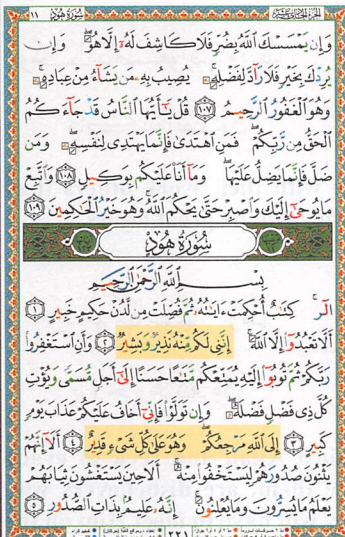 الجزء الحادي عشر سُورَةُ هُود ١١
وَإِن يَمْسَسْكَ ٱللَّهُ بِضُرٍّ فَلَا كَاشِفَ لَهُۥٓ إِلَّا هُوَ ۖ وَإِن
يُرِدْكَ بِخَيْرٍ فَلَا رَآدَّ لِفَضْلِهِۦ ۚ يُصِيبُ بِهِۦ مَن يَشَآءُ مِنْ عِبَادِهِۦ ۚ
وَهُوَ ٱلْغَفُورُ ٱلرَّحِيمُ ١٠٧ قُلْ يَٰٓأَيُّهَا ٱلنَّاسُ قَدْ جَآءَكُمُ
ٱلْحَقُّ مِن رَّبِّكُمْ ۖ فَمَنِ ٱهْتَدَىٰ فَإِنَّمَا يَهْتَدِى لِنَفْسِهِۦ ۖ وَمَن
ضَلَّ فَإِنَّمَا يَضِلُّ عَلَيْهَا ۖ وَمَآ أَنَا۠ عَلَيْكُم بِوَكِيلٍ ١٠٨ وَٱتَّبِعْ
مَا يُوحَىٰٓ إِلَيْكَ وَٱصْبِرْ حَتَّىٰ يَحْكُمَ ٱللَّهُ ۚ وَهُوَ خَيْرُ ٱلْحَٰكِمِينَ ١٠٩
سُورَةُ هُودٍ
بِسْمِ ٱللَّهِ ٱلرَّحْمَٰنِ ٱلرَّحِيمِ
الٓر ۚ كِتَٰبٌ أُحْكِمَتْ ءَايَٰتُهُۥ ثُمَّ فُصِّلَتْ مِن لَّدُنْ حَكِيمٍ خَبِيرٍ ١
أَلَّا تَعْبُدُوٓا۟ إِلَّا ٱللَّهَ ۚ إِنَّنِى لَكُم مِّنْهُ نَذِيرٌ وَبَشِيرٌ ٢ وَأَنِ ٱسْتَغْفِرُوا۟
رَبَّكُمْ ثُمَّ تُوبُوٓا۟ إِلَيْهِ يُمَتِّعْكُم مَّتَٰعًا حَسَنًا إِلَىٰٓ أَجَلٍ مُّسَمًّى وَيُؤْتِ
كُلَّ ذِى فَضْلٍ فَضْلَهُۥ ۖ وَإِن تَوَلَّوْا۟ فَإِنِّىٓ أَخَافُ عَلَيْكُمْ عَذَابَ يَوْمٍ
كَبِيرٍ ٣ إِلَى ٱللَّهِ مَرْجِعُكُمْ ۖ وَهُوَ عَلَىٰ كُلِّ شَىْءٍ قَدِيرٌ ٤ أَلَآ إِنَّهُمْ
يَثْنُونَ صُدُورَهُمْ لِيَسْتَخْفُوا۟ مِنْهُ ۚ أَلَا حِينَ يَسْتَغْشُونَ ثِيَابَهُمْ
يَعْلَمُ مَا يُسِرُّونَ وَمَا يُعْلِنُونَ ۚ إِنَّهُۥ عَلِيمٌۢ بِذَاتِ ٱلصُّدُورِ ٥
٢٢١